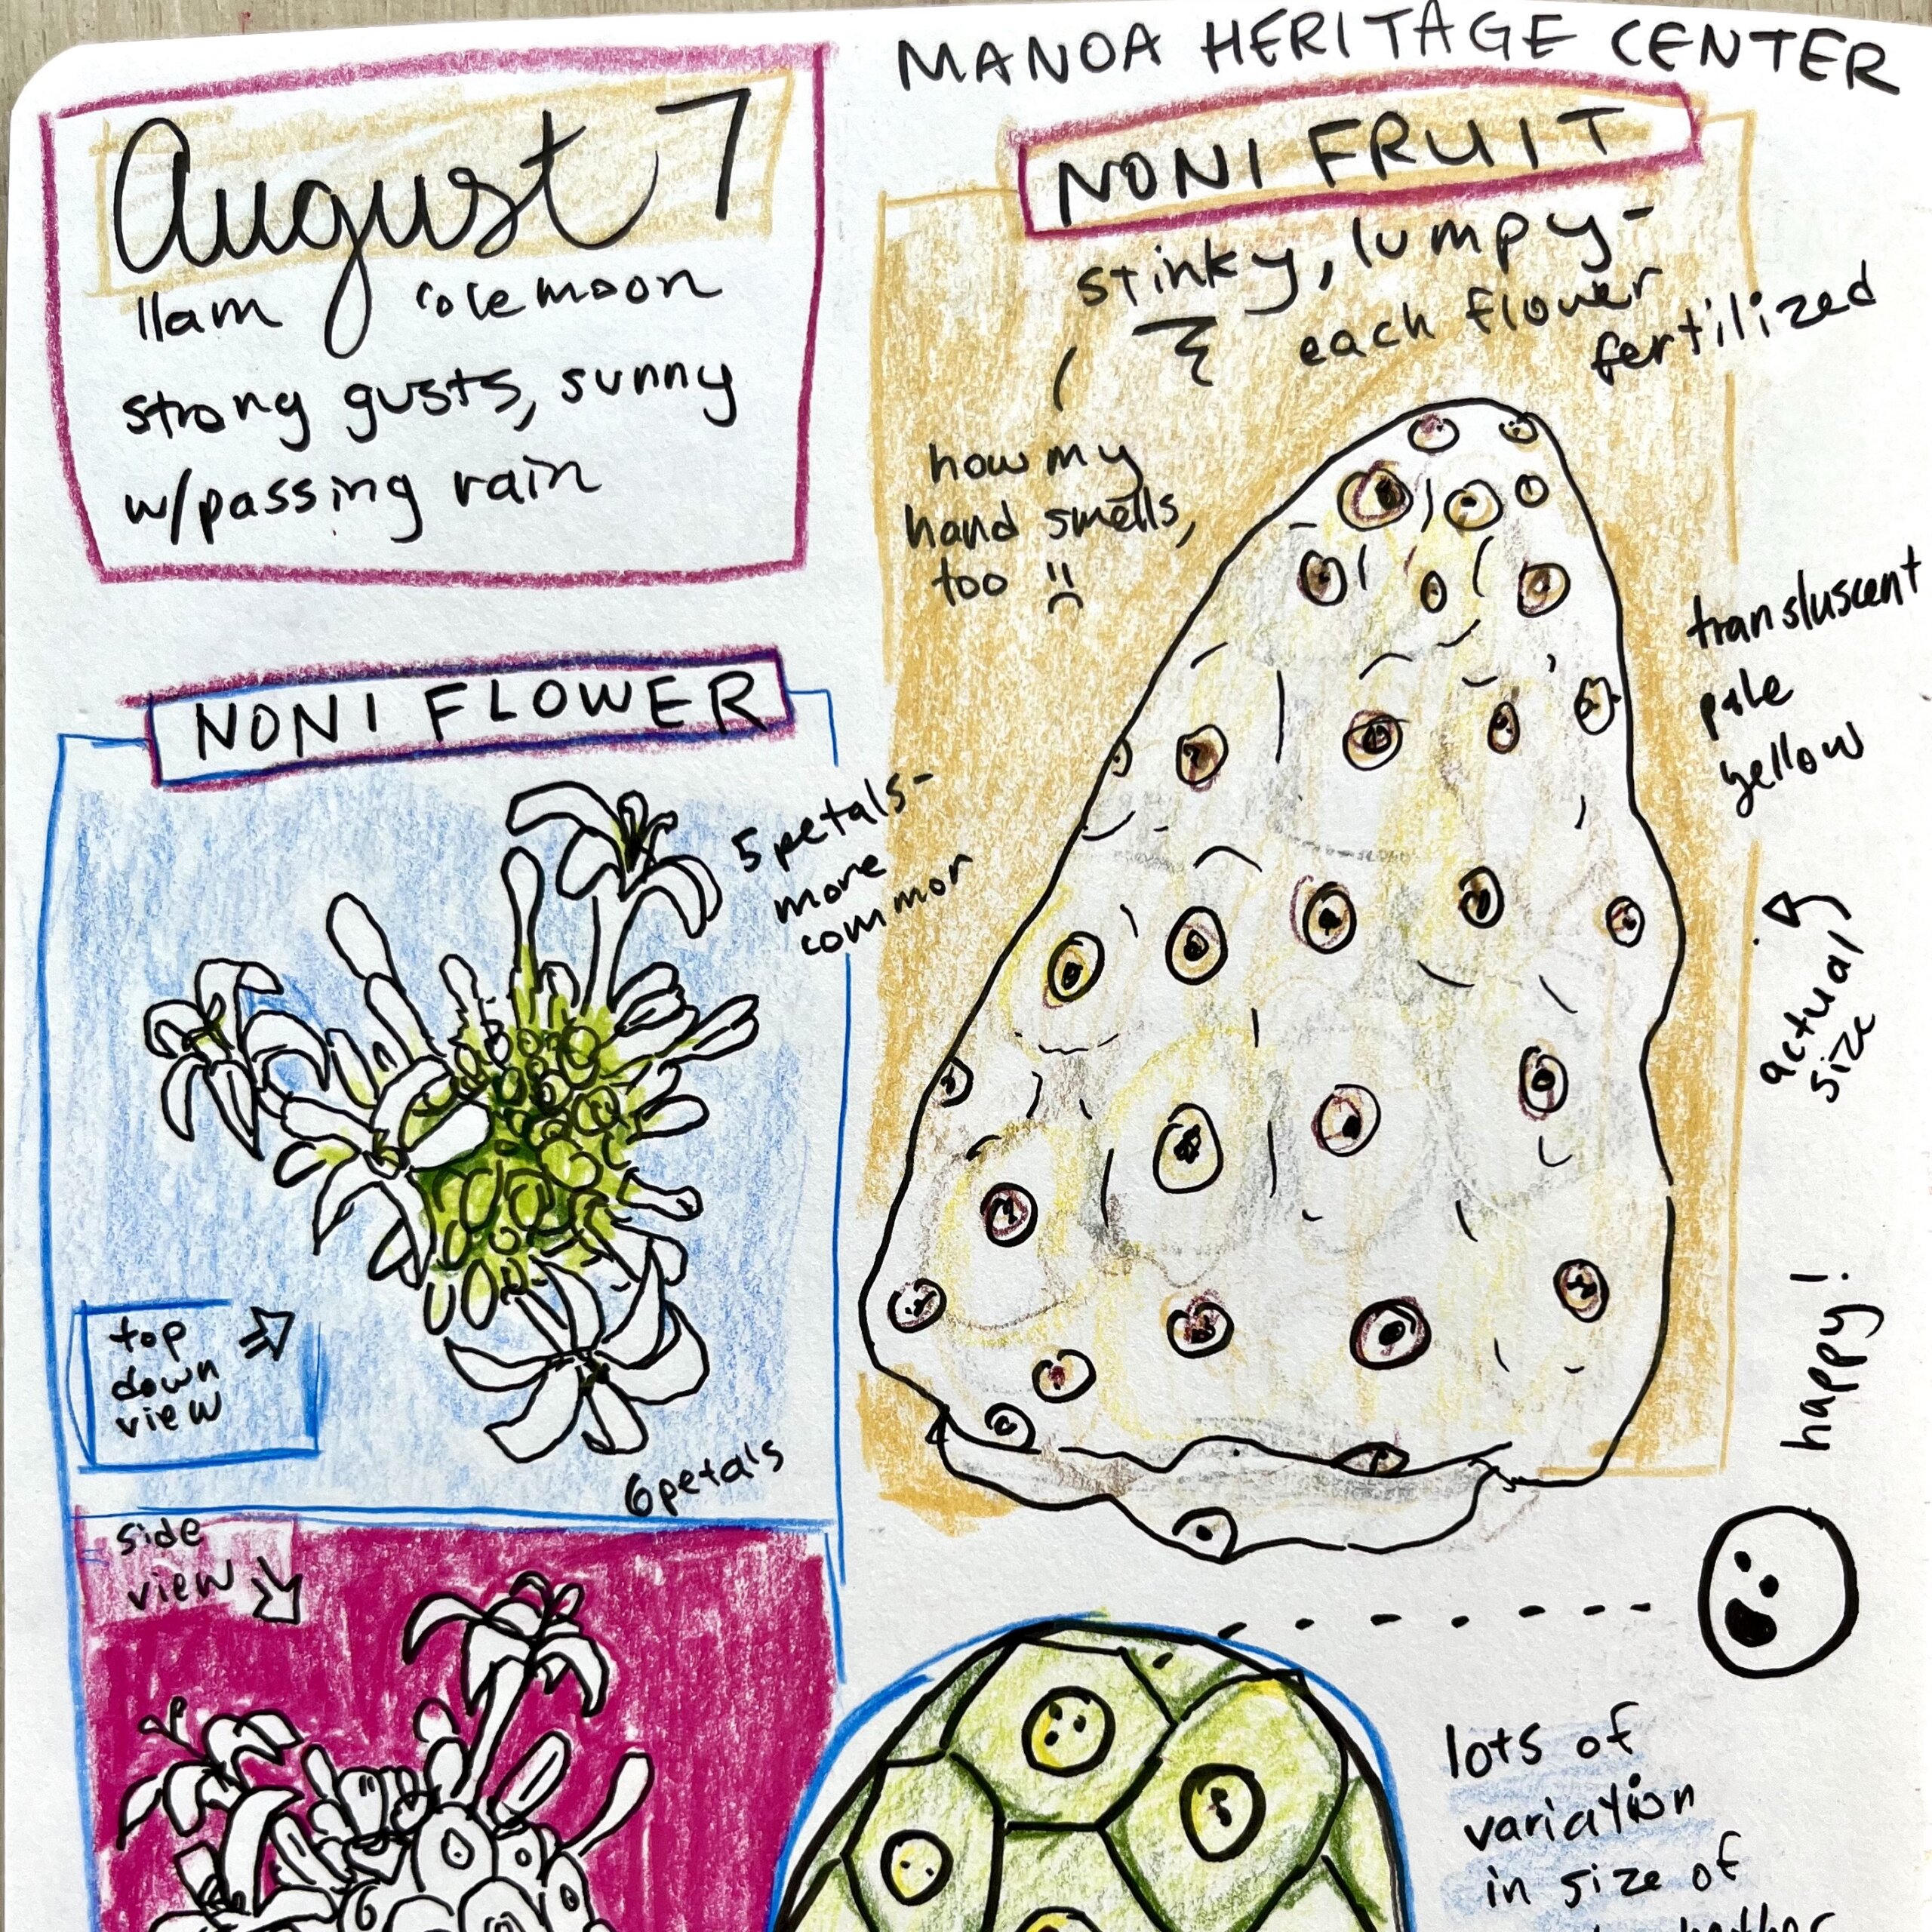 MANOA HERITAGE CENTER
August 7
11am 'ole moon
strong gusts, sunny
w/passing rain
NONI FRUIT
stinky, lumpy-
each flower
fertilized
how my
hand smells,
too
transluscent
pale
yellow
actual
size
happy!
NONI FLOWER
5 petals-
more
common
top
down
view
6 petals
side
view
lots of
variation
in size of